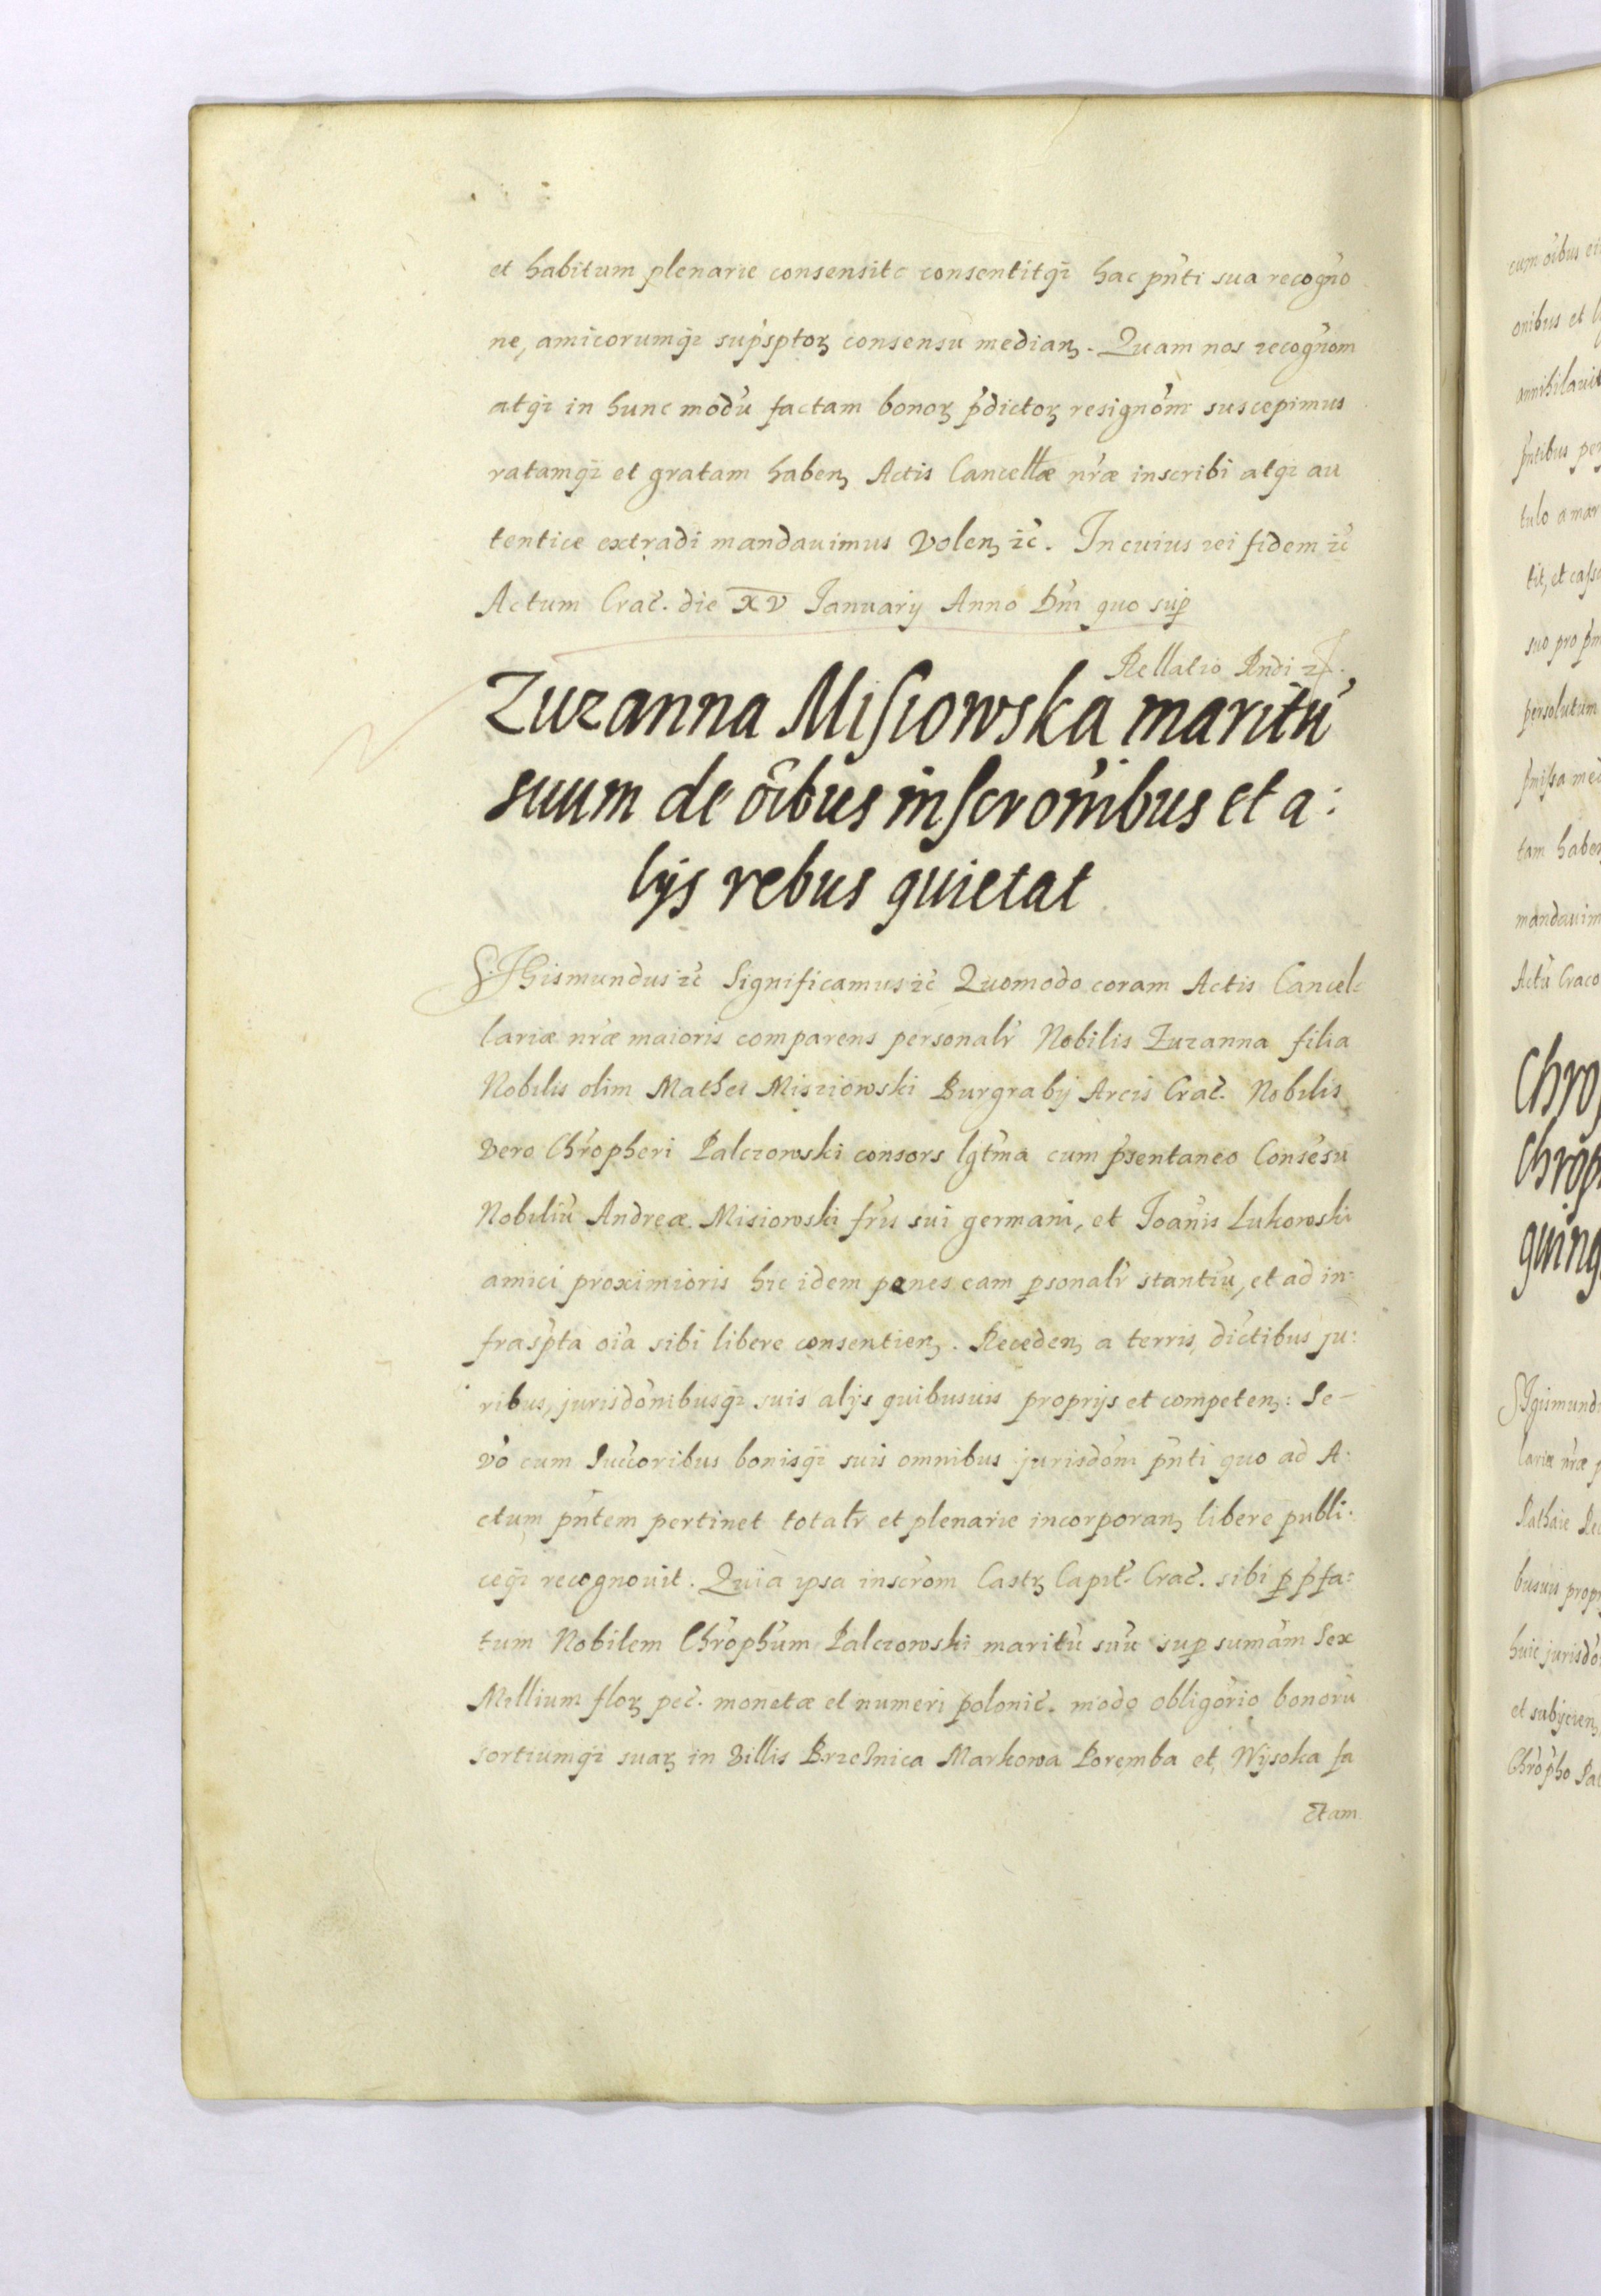 et habitum plenarie consensit consentitq̃ hac pñti sua recogño
ne, amicorumq̃ supsptoꝝ consensu median̨. Quam nos recogñom
atq̃ in hunc modũ factam bonoꝝ p̃dictoꝝ resignõm suscepimus
ratamq̃ et gratam haben̨ Actis Cancellæ nr̃æ inscribi atq̃ au
tentice extradi mandauimus Volen̨ ꝛc̃. In cuius rei fidem ꝛc̃
Actum Crac̃. die XV Ianuarij Anno Dm̃ quo sup̃
Rellatio Rndi ꝛc̃.
Zuzanna Misiowska maritũ
suum de oĩbus inscronĩbus et a:
lijs rebus quietat
SIGismundus ꝛc̃ Significamus ꝛc̃ Quomodo coram Actis Cancel
lariæ nr̃æ maioris comparens personalr̃ Nobilis Zuzanna filia
Nobilis olim Mathei Misiowski Burgrabij Arcis Crac̃. Nobilis
vero Chr̃opheri Palczowski consors lgt̃ma cum p̃sentaneo Consẽsu
Nobiliũ Andreæ Misiowski fr̃is sui germani, et Ioañis Lukowski
amici proximioris hic idem penes eam p̱sonalr̃ stantiũ, et ad in:
fraspta oĩa sibi libere consentien̨. Receden̨ a terris, dic̃tibus ju:
ribus, jurisdõnibusq̃ suis alijs quibusuis proprijs et competen̨: Se
vo cum Succ̃oribus bonisq̃ suis omnibus jurisdõni pñti quo ad A:
ctum pñtem pertinet totalr̃ et plenarie incorporan̨ libere publi:
ceq̃ recognouit. Quia ipsa inscrõm Castꝝ Capit̃. Crac̃. sibi p̱ p̃fa:
tum Nobilem Chr̃ophũm Palczowski maritũ suũ sup̱ sumãm Sex
Millium floꝝ pec̃. monetæ et numeri polonic̃. modo obligõrio bonorũ
sortiumq̃ suaꝝ in Villis Brzesnica Markowa Poremba et Wysoka fa
ctam
cum oĩbus
onibus et
annihilauit
pñtibus
tulo a mar
tit, et cassa
suo pro
persolutum
p̃missa med
tam haben̨
mandauim
Actũ Craco
Chrop
Chrop
quing
SIgismund
lariæ nr̃æ
Rathaie
busuis propr
huic jurisdõ
et subijcien̨
Chr̃opho Pal